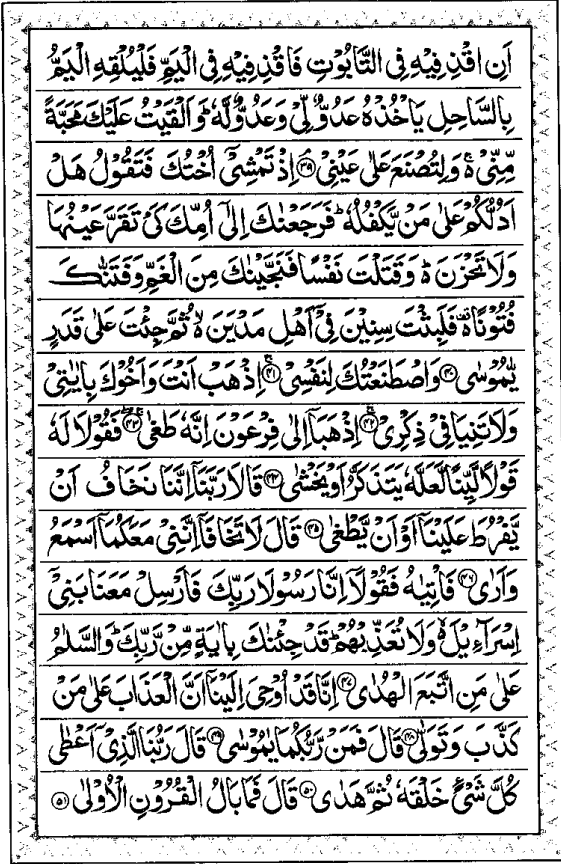 اَنِ اقْذِفِيْهِ فِى التَّابُوْتِ فَاقْذِفِيْهِ فِى الْيَمِّ فَلْيُلْقِهِ الْيَمُّ
بِالسَّاحِلِ يَاْخُذْهُ عَدُوٌّ لِّىْ وَعَدُوٌّ لَّهٗ ؕ وَاَلْقَيْتُ عَلَيْكَ مَحَبَّةً
مِّنِّىْ ۚ۬ وَلِتُصْنَعَ عَلٰى عَيْنِىْ ۘ ﴿۳۹﴾ اِذْ تَمْشِىْۤ اُخْتُكَ فَتَقُوْلُ هَلْ
اَدُلُّكُمْ عَلٰى مَنْ يَّكْفُلُهٗ ؕ فَرَجَعْنٰكَ اِلٰٓى اُمِّكَ كَىْ تَقَرَّ عَيْنُهَا
وَلَا تَحْزَنَ ۬ؕ وَقَتَلْتَ نَفْسًا فَنَجَّيْنٰكَ مِنَ الْغَمِّ وَفَتَنّٰكَ
فُتُوْنًا ۬۫ فَلَبِثْتَ سِنِيْنَ فِىْۤ اَهْلِ مَدْيَنَ ۬ۙ ثُمَّ جِئْتَ عَلٰى قَدَرٍ
يّٰمُوْسٰى ﴿۴۰﴾ وَاصْطَنَعْتُكَ لِنَفْسِىْ ۚ ﴿۴۱﴾ اِذْهَبْ اَنْتَ وَاَخُوْكَ بِاٰيٰتِىْ
وَلَا تَنِيَا فِىْ ذِكْرِىْ ۚ ﴿۴۲﴾ اِذْهَبَاۤ اِلٰى فِرْعَوْنَ اِنَّهٗ طَغٰى ۚۖ ﴿۴۳﴾ فَقُوْلَا لَهٗ
قَوْلًا لَّيِّنًا لَّعَلَّهٗ يَتَذَكَّرُ اَوْ يَخْشٰى ﴿۴۴﴾ قَالَا رَبَّنَاۤ اِنَّنَا نَخَافُ اَنْ
يَّفْرُطَ عَلَيْنَاۤ اَوْ اَنْ يَّطْغٰى ﴿۴۵﴾ قَالَ لَا تَخَافَاۤ اِنَّنِىْ مَعَكُمَاۤ اَسْمَعُ
وَاَرٰى ﴿۴۶﴾ فَاْتِيٰهُ فَقُوْلَاۤ اِنَّا رَسُوْلَا رَبِّكَ فَاَرْسِلْ مَعَنَا بَنِىْۤ
اِسْرَآءِيْلَ ۬ۙ وَلَا تُعَذِّبْهُمْ ؕ قَدْ جِئْنٰكَ بِاٰيَةٍ مِّنْ رَّبِّكَ ؕ وَالسَّلٰمُ
عَلٰى مَنِ اتَّبَعَ الْهُدٰى ﴿۴۷﴾ اِنَّا قَدْ اُوْحِىَ اِلَيْنَاۤ اَنَّ الْعَذَابَ عَلٰى مَنْ
كَذَّبَ وَتَوَلّٰى ﴿۴۸﴾ قَالَ فَمَنْ رَّبُّكُمَا يٰمُوْسٰى ﴿۴۹﴾ قَالَ رَبُّنَا الَّذِىْۤ اَعْطٰى
كُلَّ شَىْءٍ خَلْقَهٗ ثُمَّ هَدٰى ﴿۵۰﴾ قَالَ فَمَا بَالُ الْقُرُوْنِ الْاُوْلٰى ﴿۵۱﴾